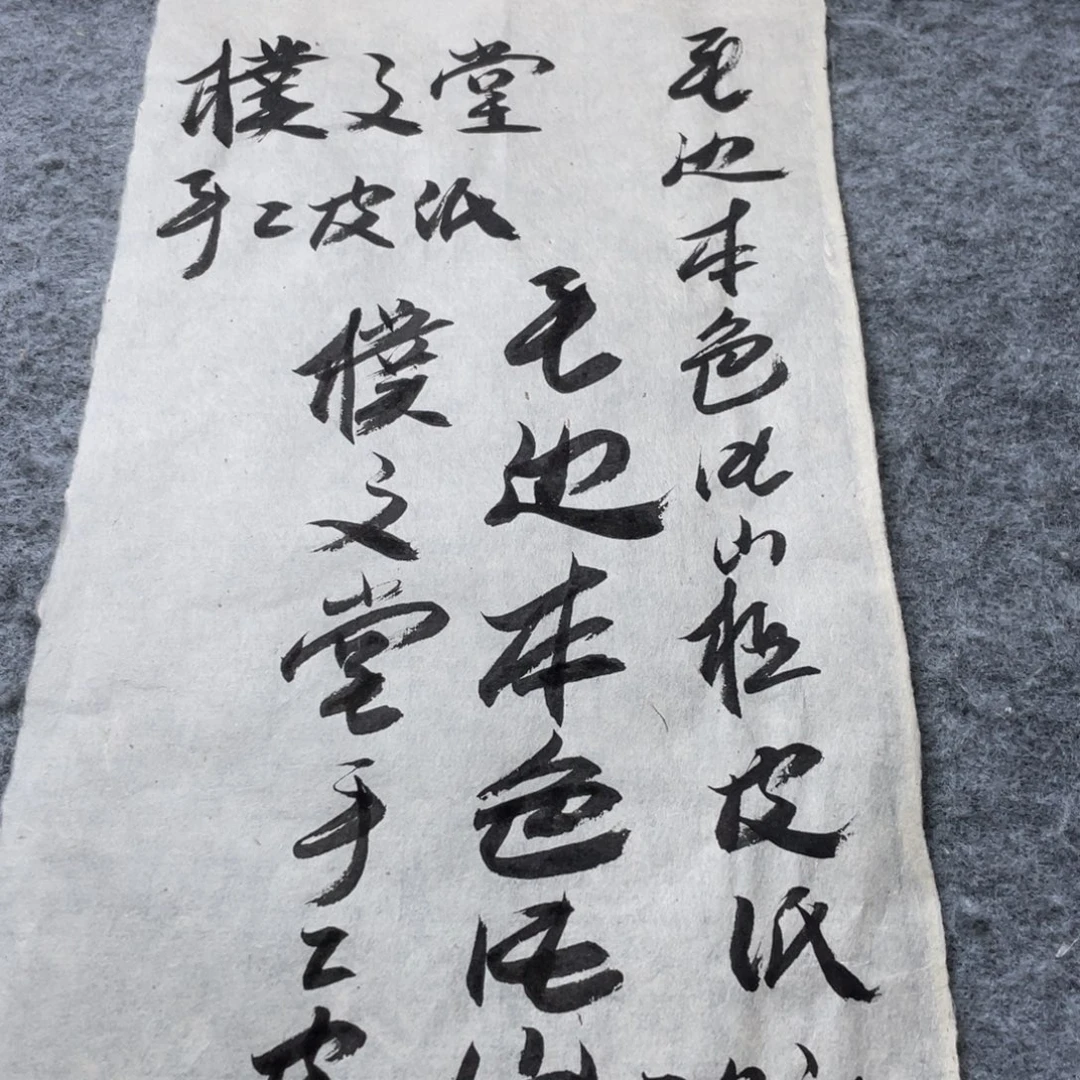 毛边本色纯山桠皮纸
毛边本色纯山
樸文堂手工皮
樸文堂
手工皮纸